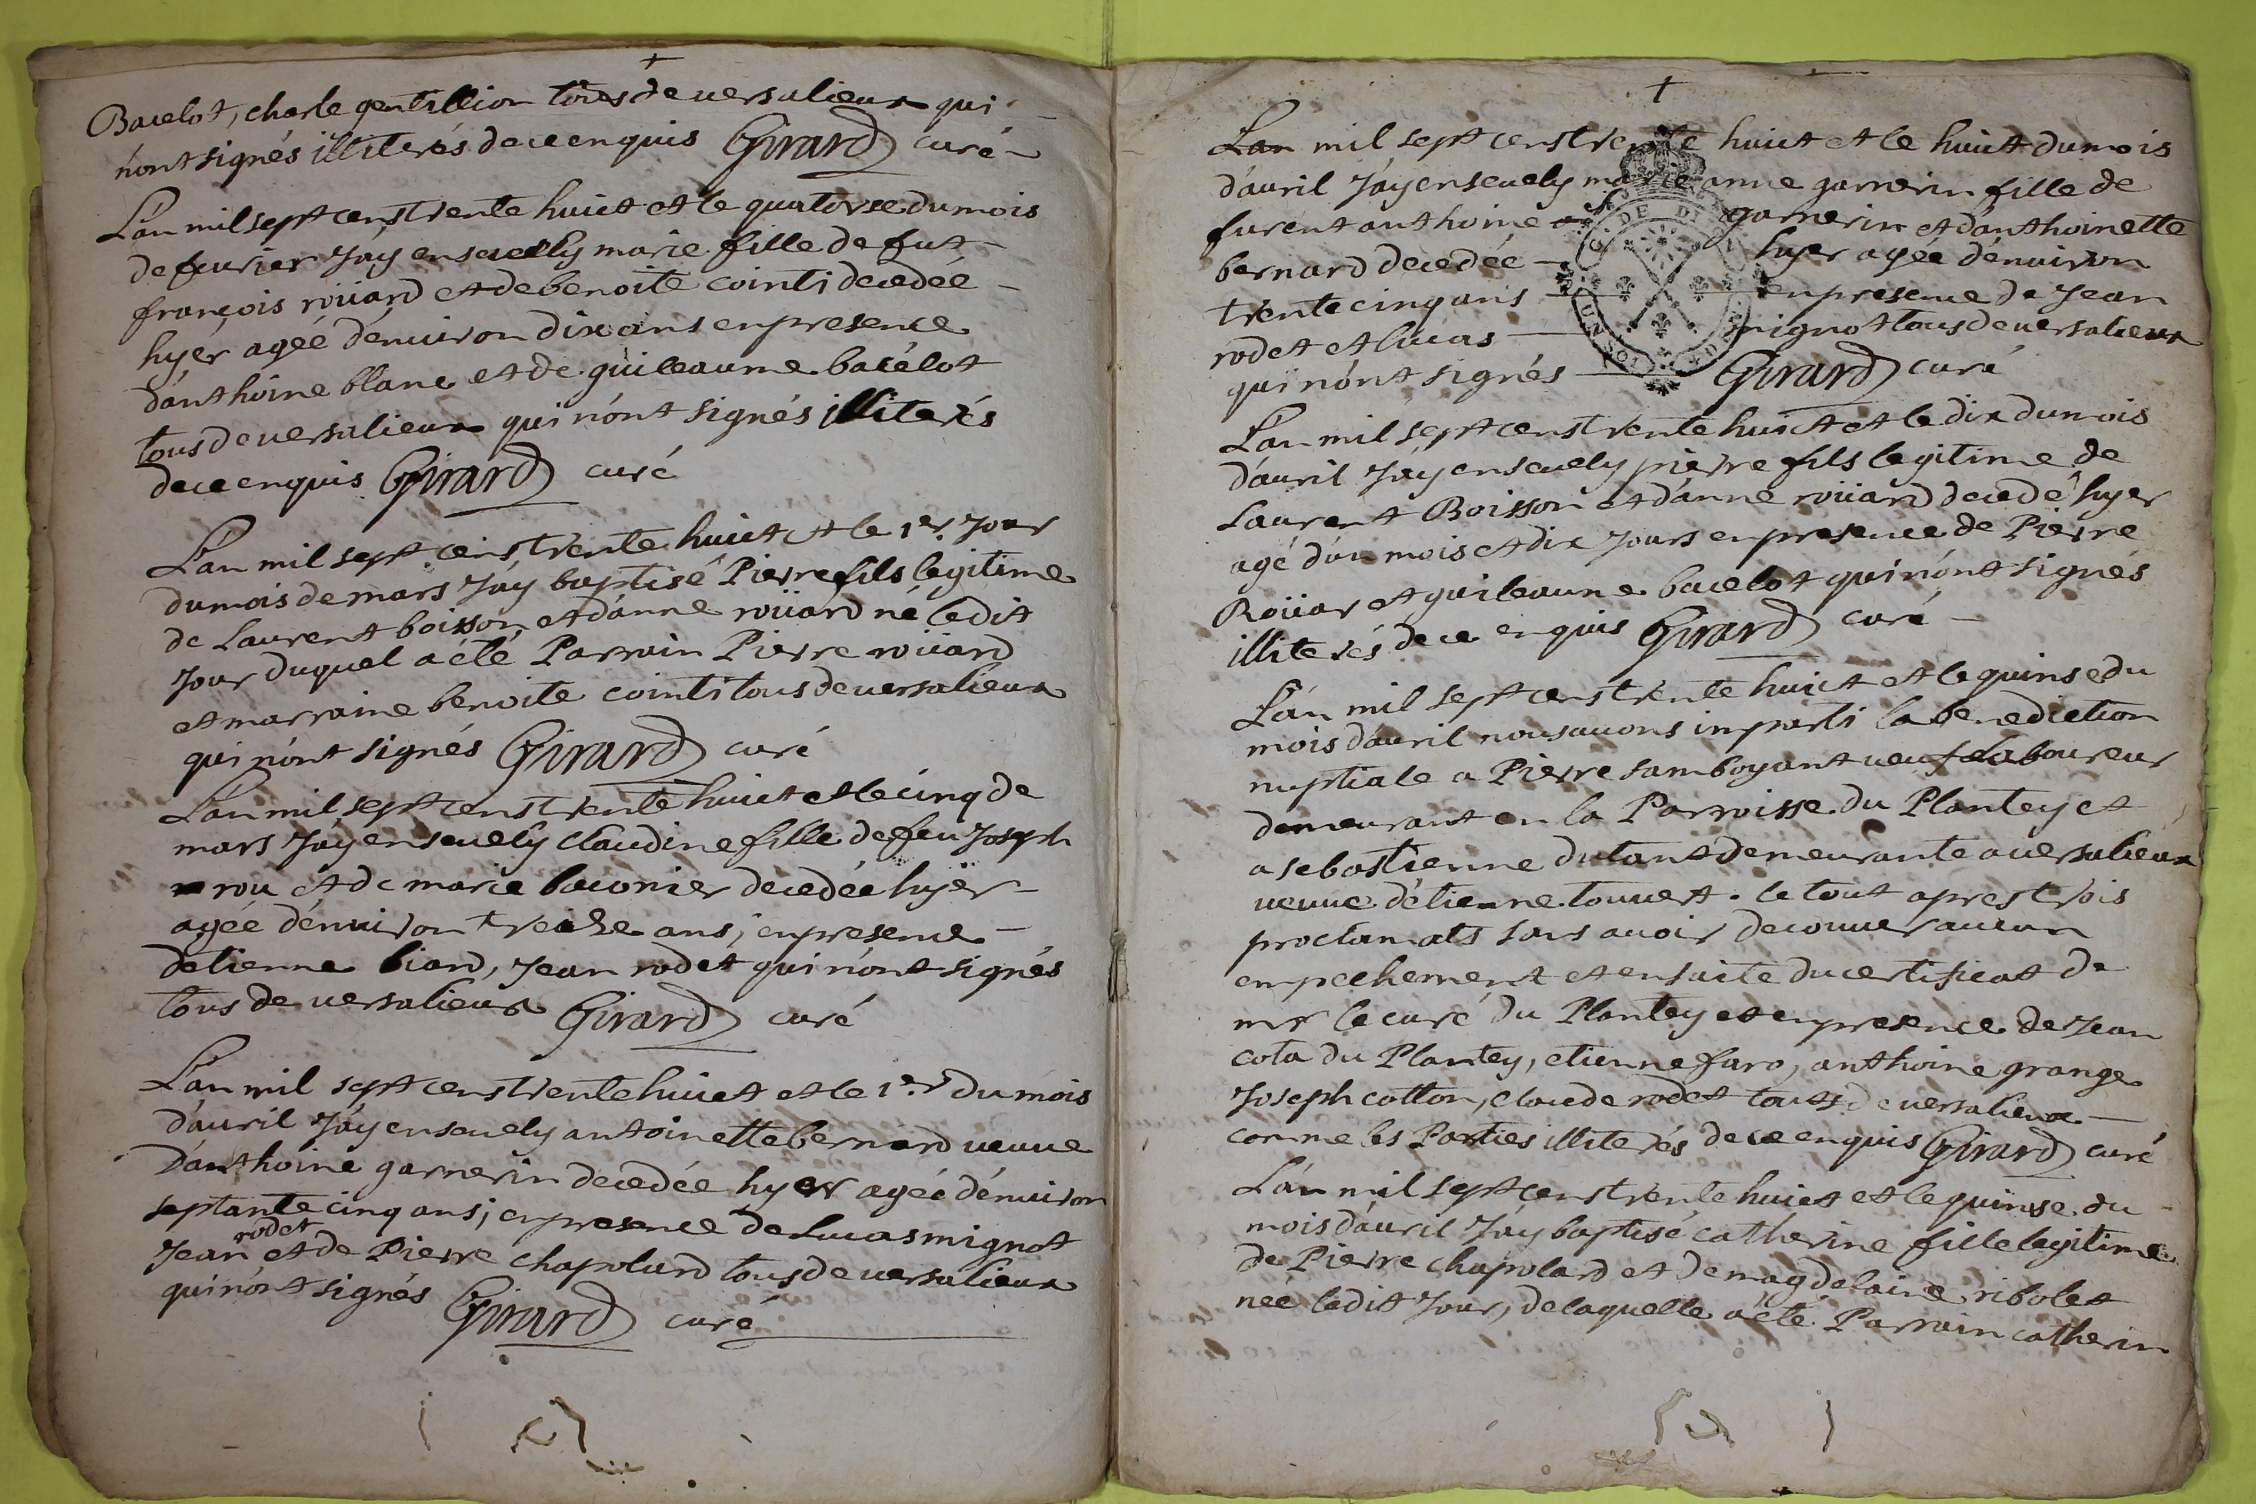 +
Bacelot, charle gentillion tous de versalieux qui
n'ont signés illiterés de ce enquis Girard curé
L'an mil sept cens trente huict et le quatorze du mois
de feurier J'ay enseuelly marie fille de fut
françois roüard et de benoite cointi decedeé
hyer ageé d'enuiron dix ans en presence
d'anthoine blanc et de guileaume bacelot
tous de uersalieux qui n'ont signés illiterés
de ce enquis Girard curé
L'an mil sept cens trente huict et le 1er Jour
du mois de mars J'ay baptisé Pierre fils legitime
de Laurent boisson et d'anne roüard né ledit
Jour duquel a été Parrain Pierre roüard
et marraine benoite cointi tous de uersalieux
qui n'ont signés Girard curé
L'an mil sept cens trente huict et le cinq de
mars J'ay enseuely claudine fille de feu Joseph
rou et de marie baconier decedée hyer
agée d'enuiron treize ans, en presence
detienne biard, Jean rodet qui n'ont signés
tous de uersalieux Girard curé
L'an mil sept cens trente huict et le 1er du mois
d'auril J'ay enseuely antoinette bernard ueuue
D'anthoine garnerin decedée hyer ageé d'enuiron
septante cinq ans, en presence de Lucas mignot
rodet
Jean et de Pierre chapolard tous de uersalieux
qui n'ont signés Girard curé
+
L'an mil sept cens trente huict et le huict du mois
d'auril J'ay enseuely marie anne garnerin fille de
furent anthoine garnerin et d'anthoinette
bernard decedée hyer ageé d'enuiron
trente cinq ans en presence de Jean
rodet et lucas mignot tous de uersalieux
qui n'ont signés Girard curé
L'an mil sept cens trente huict et le dix du mois
d'auril J'ay enseuely pierre fils legitime de
Laurent Boisson et d'anne roüard decedé hyer
agé d'un mois et dix Jours en presence de Pierre
Roüar et guileaume bacelot qui n'ont signés
illiterés de ce enquis Girard curé
L'an mil sept cens trente huict et le quinse du
mois d'auril nous auons imparti la benediction
nuptiale a Pierre samboyant ueuf Laboureur
demeurant en la Parroisse du Plantey et
a sebastienne dutant demeurante a uersalieux
ueuue d'étienne touuet. le tout apres trois
proclamats sans auoir decouuer aucun
empechement et ensuite du certificat de
mr le curé du Plantey et en presence de Jean
cota du Plantey, etienne faro, anthoine grange
Joseph cotton, claude rodet touts de uersalieux
comme les Parties illiterés de ce enquis Girard curé
L'an mil sept cens trente huict et le quinse du
mois d'auril J'ay baptisé catherine fille legitime
de Pierre chapolard et de magdelaine ribolet
neé ledit Jour, de laquelle a été Parrain catherin